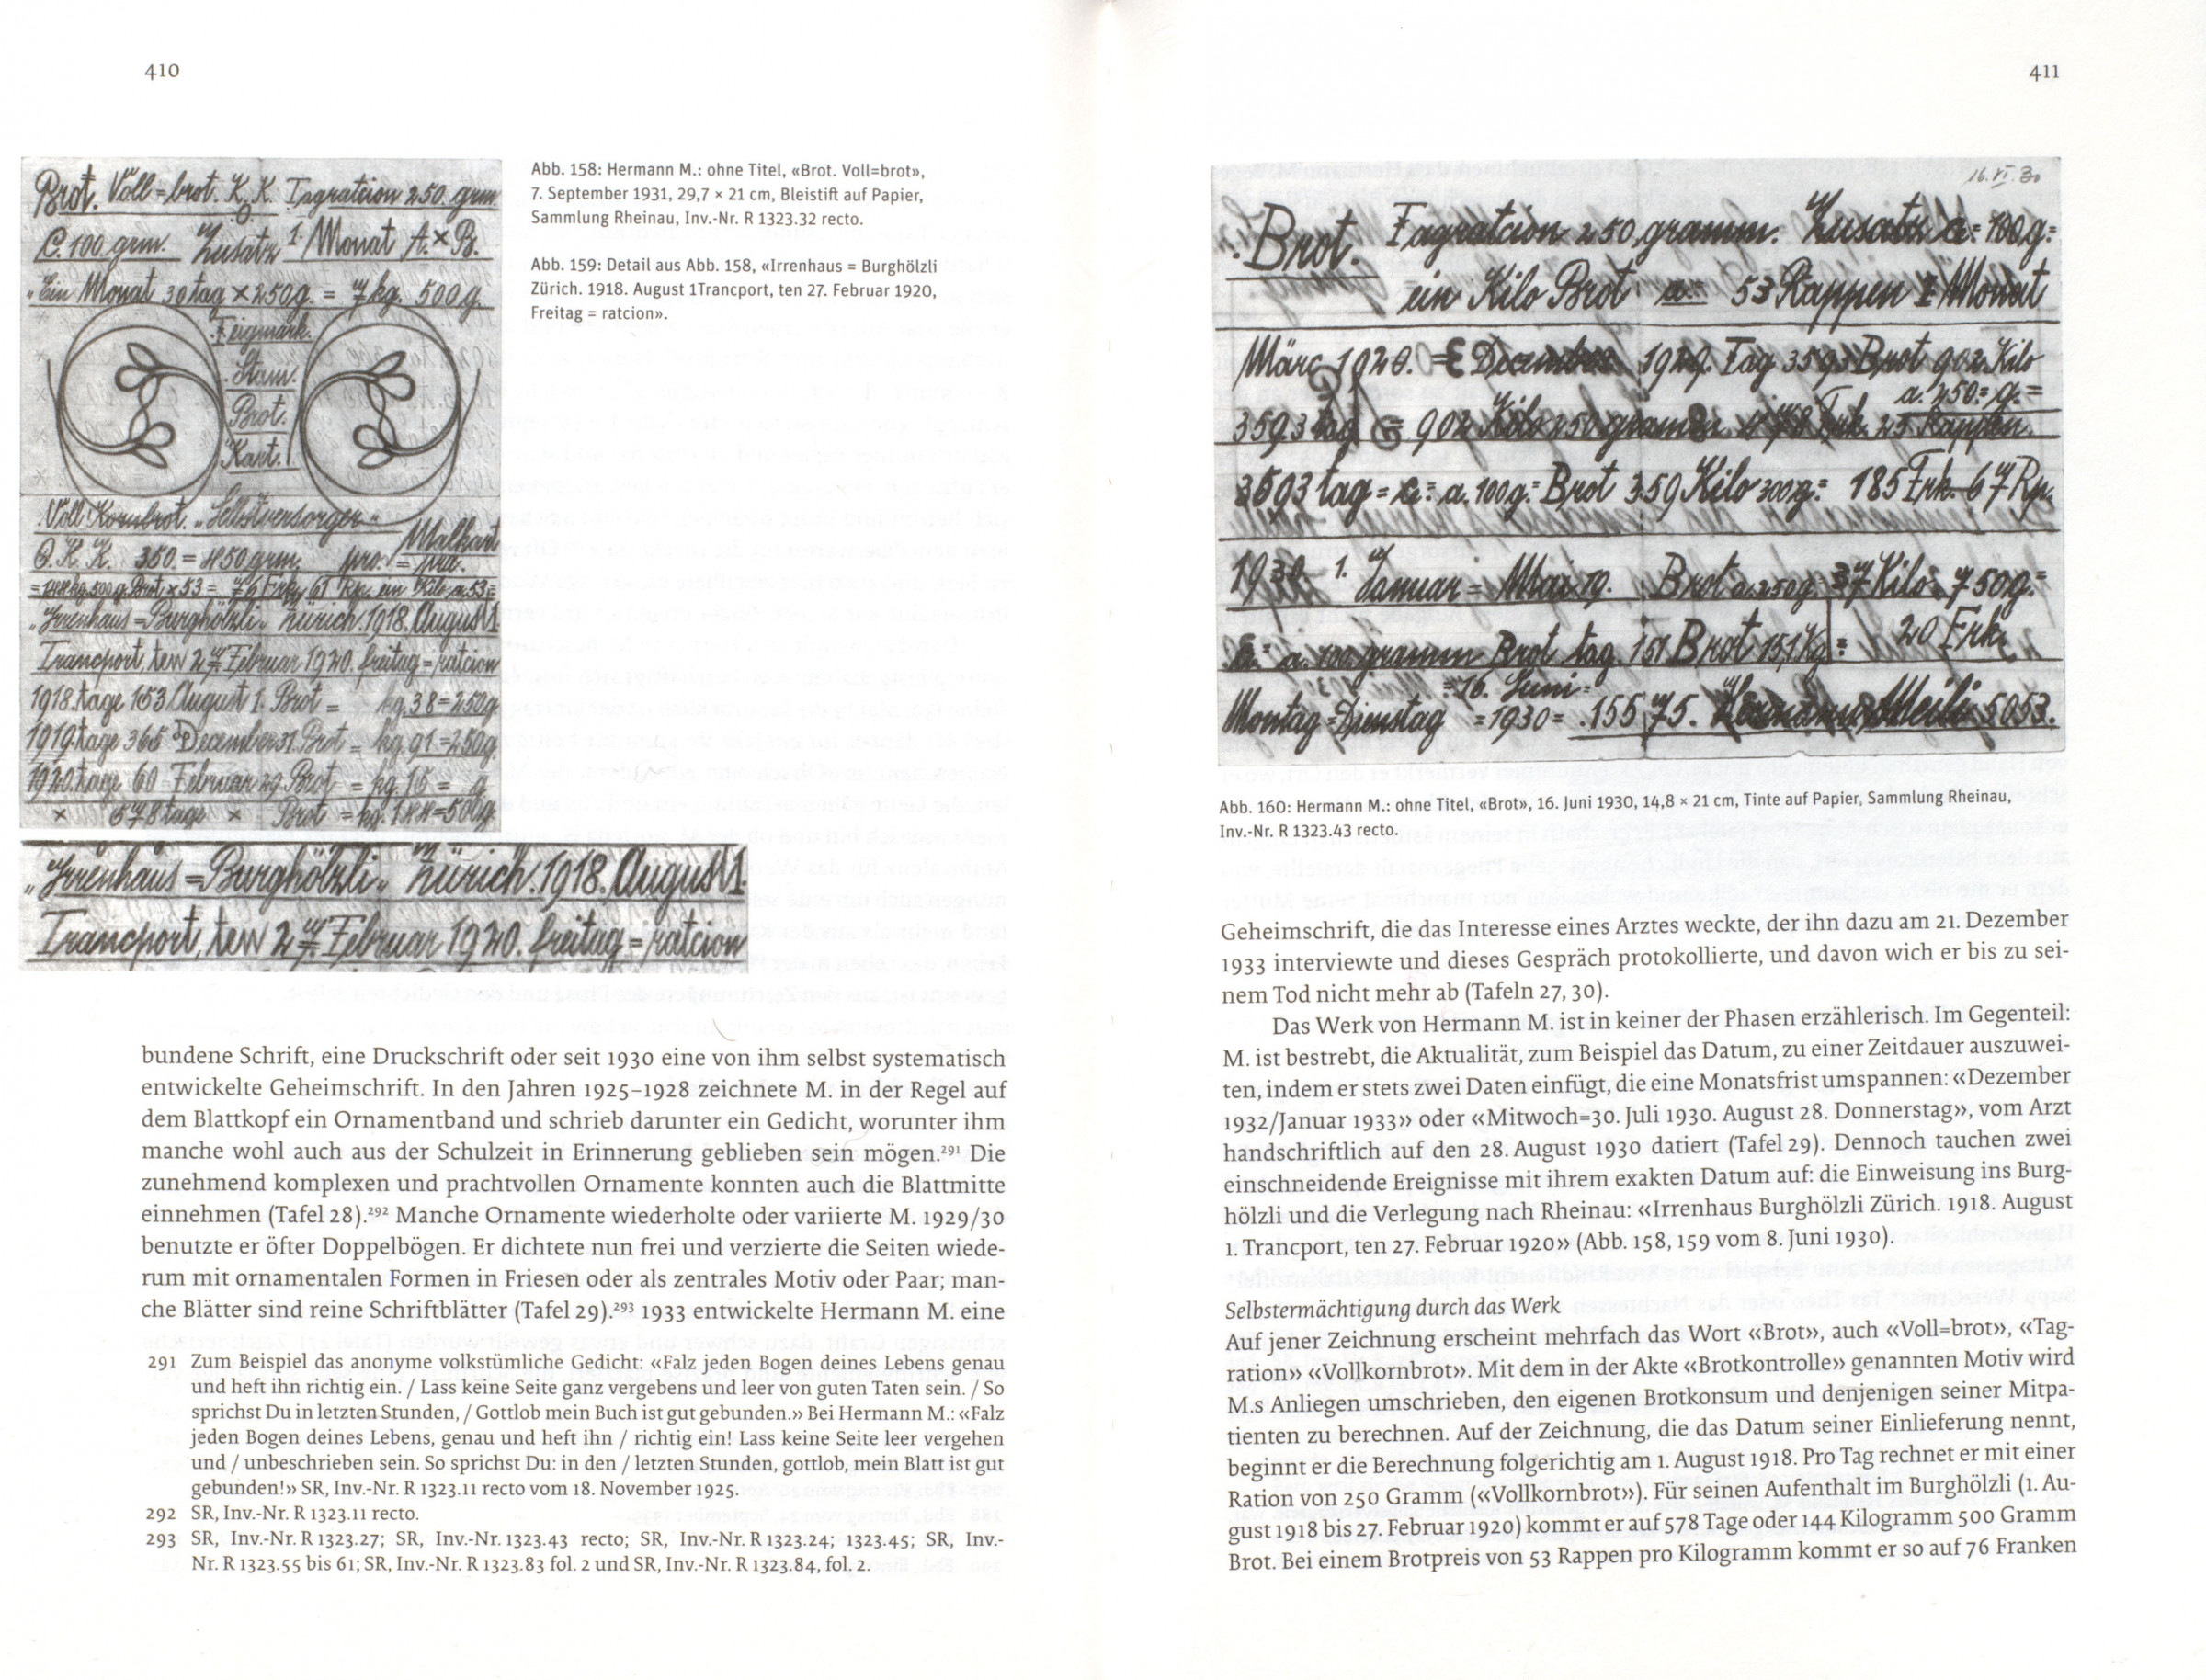 410
Brot. Voll=brot. K. K. Tagratcion 250. grm.
C. 100. grm. Zusatz 1. Monat A.×B.
"Ein Monat 30 tag × 250 g. = 7 kg. 500 g.
Tagmark.
Stam.
Brot.
Kart.
Voll Kornbrot. "Selbstversorger"
O. K. K. 350. = 450 grm. pro. Malkart
"Irrenhaus=Burghölzli" Zürich. 1918. August 1
Trancport, ten 27. Februar 1920. freitag=ratcion
1918. tage 153. August 1. Brot = kg. 38=250g
1919. tage 365 December 31. Brot = kg. 91=250g
1920. tage 60 Februar 29. Brot = kg. 15= g
× 578 tage × Brot = kg. 144=500g
"Irrenhaus=Burghölzli" Zürich. 1918. August 1.
Trancport, ten 27. Februar 1920. freitag=ratcion
Abb. 158: Hermann M.: ohne Titel, «Brot. Voll=brot»,
7. September 1931, 29,7 × 21 cm, Bleistift auf Papier,
Sammlung Rheinau, Inv.-Nr. R 1323.32 recto.
Abb. 159: Detail aus Abb. 158, «Irrenhaus = Burghölzli
Zürich. 1918. August 1Trancport, ten 27. Februar 1920,
Freitag = ratcion».
bundene Schrift, eine Druckschrift oder seit 1930 eine von ihm selbst systematisch
entwickelte Geheimschrift. In den Jahren 1925–1928 zeichnete M. in der Regel auf
dem Blattkopf ein Ornamentband und schrieb darunter ein Gedicht, worunter ihm
manche wohl auch aus der Schulzeit in Erinnerung geblieben sein mögen.²⁹¹ Die
zunehmend komplexen und prachtvollen Ornamente konnten auch die Blattmitte
einnehmen (Tafel 28).²⁹² Manche Ornamente wiederholte oder variierte M. 1929/30
benutzte er öfter Doppelbögen. Er dichtete nun frei und verzierte die Seiten wiede-
rum mit ornamentalen Formen in Friesen oder als zentrales Motiv oder Paar; man-
che Blätter sind reine Schriftblätter (Tafel 29).²⁹³ 1933 entwickelte Hermann M. eine
291 Zum Beispiel das anonyme volkstümliche Gedicht: «Falz jeden Bogen deines Lebens genau
und heft ihn richtig ein. / Lass keine Seite ganz vergebens und leer von guten Taten sein. / So
sprichst Du in letzten Stunden, / Gottlob mein Buch ist gut gebunden.» Bei Hermann M.: «Falz
jeden Bogen deines Lebens, genau und heft ihn / richtig ein! Lass keine Seite leer vergehen
und / unbeschrieben sein. So sprichst Du: in den / letzten Stunden, gottlob, mein Blatt ist gut
gebunden!» SR, Inv.-Nr. R 1323.11 recto vom 18. November 1925.
292 SR, Inv.-Nr. R 1323.11 recto.
293 SR, Inv.-Nr. R 1323.27; SR, Inv.-Nr. 1323.43 recto; SR, Inv.-Nr. R 1323.24; 1323.45; SR, Inv.-
Nr. R 1323.55 bis 61; SR, Inv.-Nr. R 1323.83 fol. 2 und SR, Inv.-Nr. R 1323.84, fol. 2.
411
16. VI. 30
Brot. Tagratcion 250. gramm. Zusatz 100 g.=
ein Kilo Brot a= 53 Rappen Monat
März 1920. December 1929. Tag 3593 Brot 902 Kilo
a. 250.=g.=
3593 tag 902 Kilo 250 gramm 478 Frk. 25 Rappen.
3593 tag = a. 100 g.= Brot 359 Kilo 300 g.= 185 Frk. 67 Rp.
1930. 1. Januar = Brot a 250 g= 37 Kilo= 750 g.=
a. 100 gramm Brot tag. 151 Brot 15,1 Kg.= 20 Frk.
16. Juni=
Montag=Dienstag =1930= 155 75. 5053.
Abb. 160: Hermann M.: ohne Titel, «Brot», 16. Juni 1930, 14,8 × 21 cm, Tinte auf Papier, Sammlung Rheinau,
Inv.-Nr. R 1323.43 recto.
Geheimschrift, die das Interesse eines Arztes weckte, der ihn dazu am 21. Dezember
1933 interviewte und dieses Gespräch protokollierte, und davon wich er bis zu sei-
nem Tod nicht mehr ab (Tafeln 27, 30).
Das Werk von Hermann M. ist in keiner der Phasen erzählerisch. Im Gegenteil:
M. ist bestrebt, die Aktualität, zum Beispiel das Datum, zu einer Zeitdauer auszuwei-
ten, indem er stets zwei Daten einfügt, die eine Monatsfrist umspannen: «Dezember
1932/Januar 1933» oder «Mitwoch=30. Juli 1930. August 28. Donnerstag», vom Arzt
handschriftlich auf den 28. August 1930 datiert (Tafel 29). Dennoch tauchen zwei
einschneidende Ereignisse mit ihrem exakten Datum auf: die Einweisung ins Burg-
hölzli und die Verlegung nach Rheinau: «Irrenhaus Burghölzli Zürich. 1918. August
1. Trancport, ten 27. Februar 1920» (Abb. 158, 159 vom 8. Juni 1930).
Selbstermächtigung durch das Werk
Auf jener Zeichnung erscheint mehrfach das Wort «Brot», auch «Voll=brot», «Tag-
ration» «Vollkornbrot». Mit dem in der Akte «Brotkontrolle» genannten Motiv wird
M.s Anliegen umschrieben, den eigenen Brotkonsum und denjenigen seiner Mitpa-
tienten zu berechnen. Auf der Zeichnung, die das Datum seiner Einlieferung nennt,
beginnt er die Berechnung folgerichtig am 1. August 1918. Pro Tag rechnet er mit einer
Ration von 250 Gramm («Vollkornbrot»). Für seinen Aufenthalt im Burghölzli (1. Au-
gust 1918 bis 27. Februar 1920) kommt er auf 578 Tage oder 144 Kilogramm 500 Gramm
Brot. Bei einem Brotpreis von 53 Rappen pro Kilogramm kommt er so auf 76 Franken